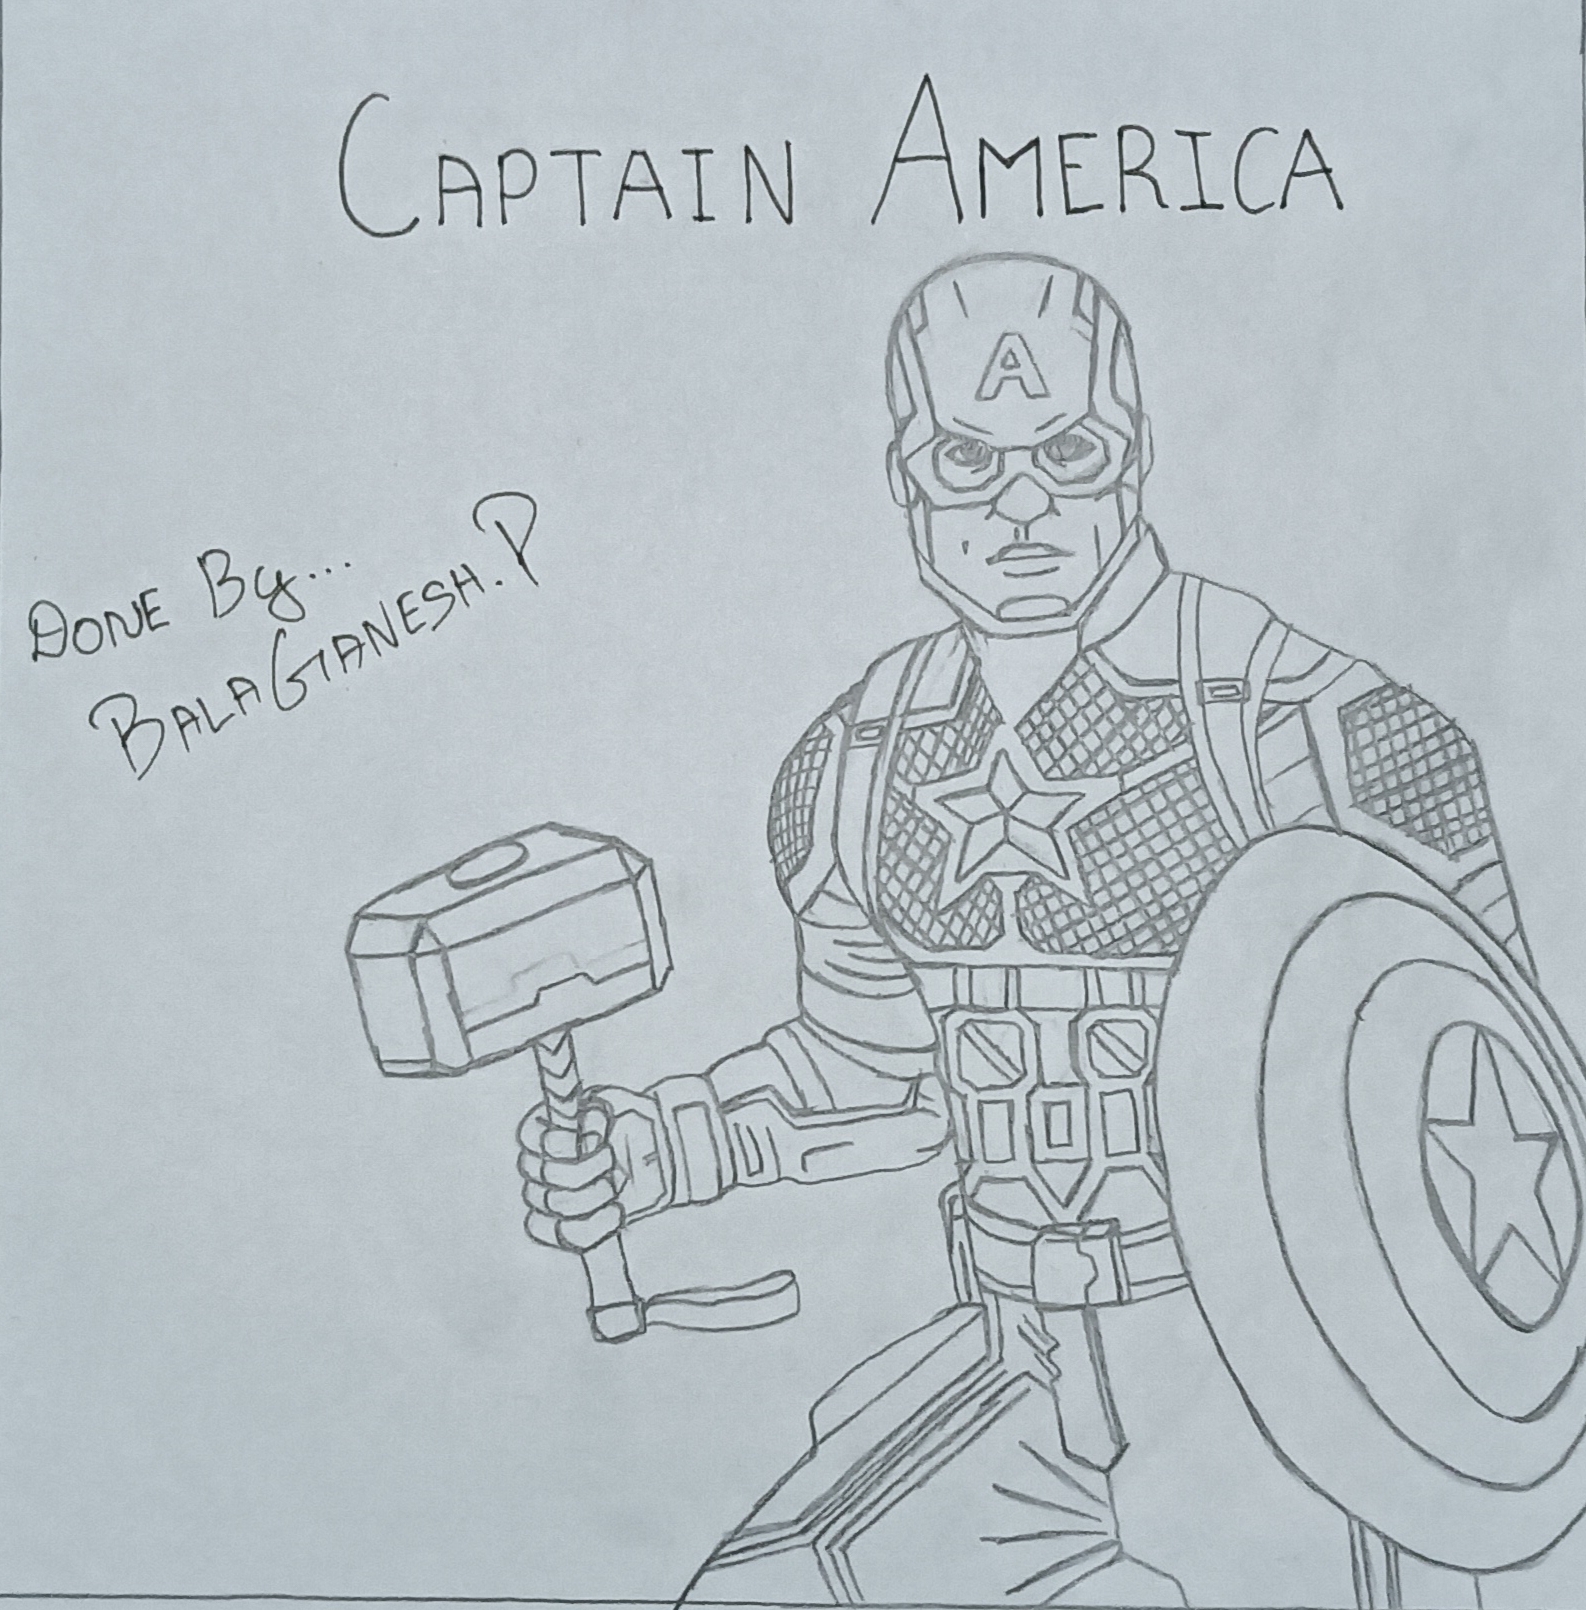 CAPTAIN AMERICA
A
DONE By...
BALAGANESH.P